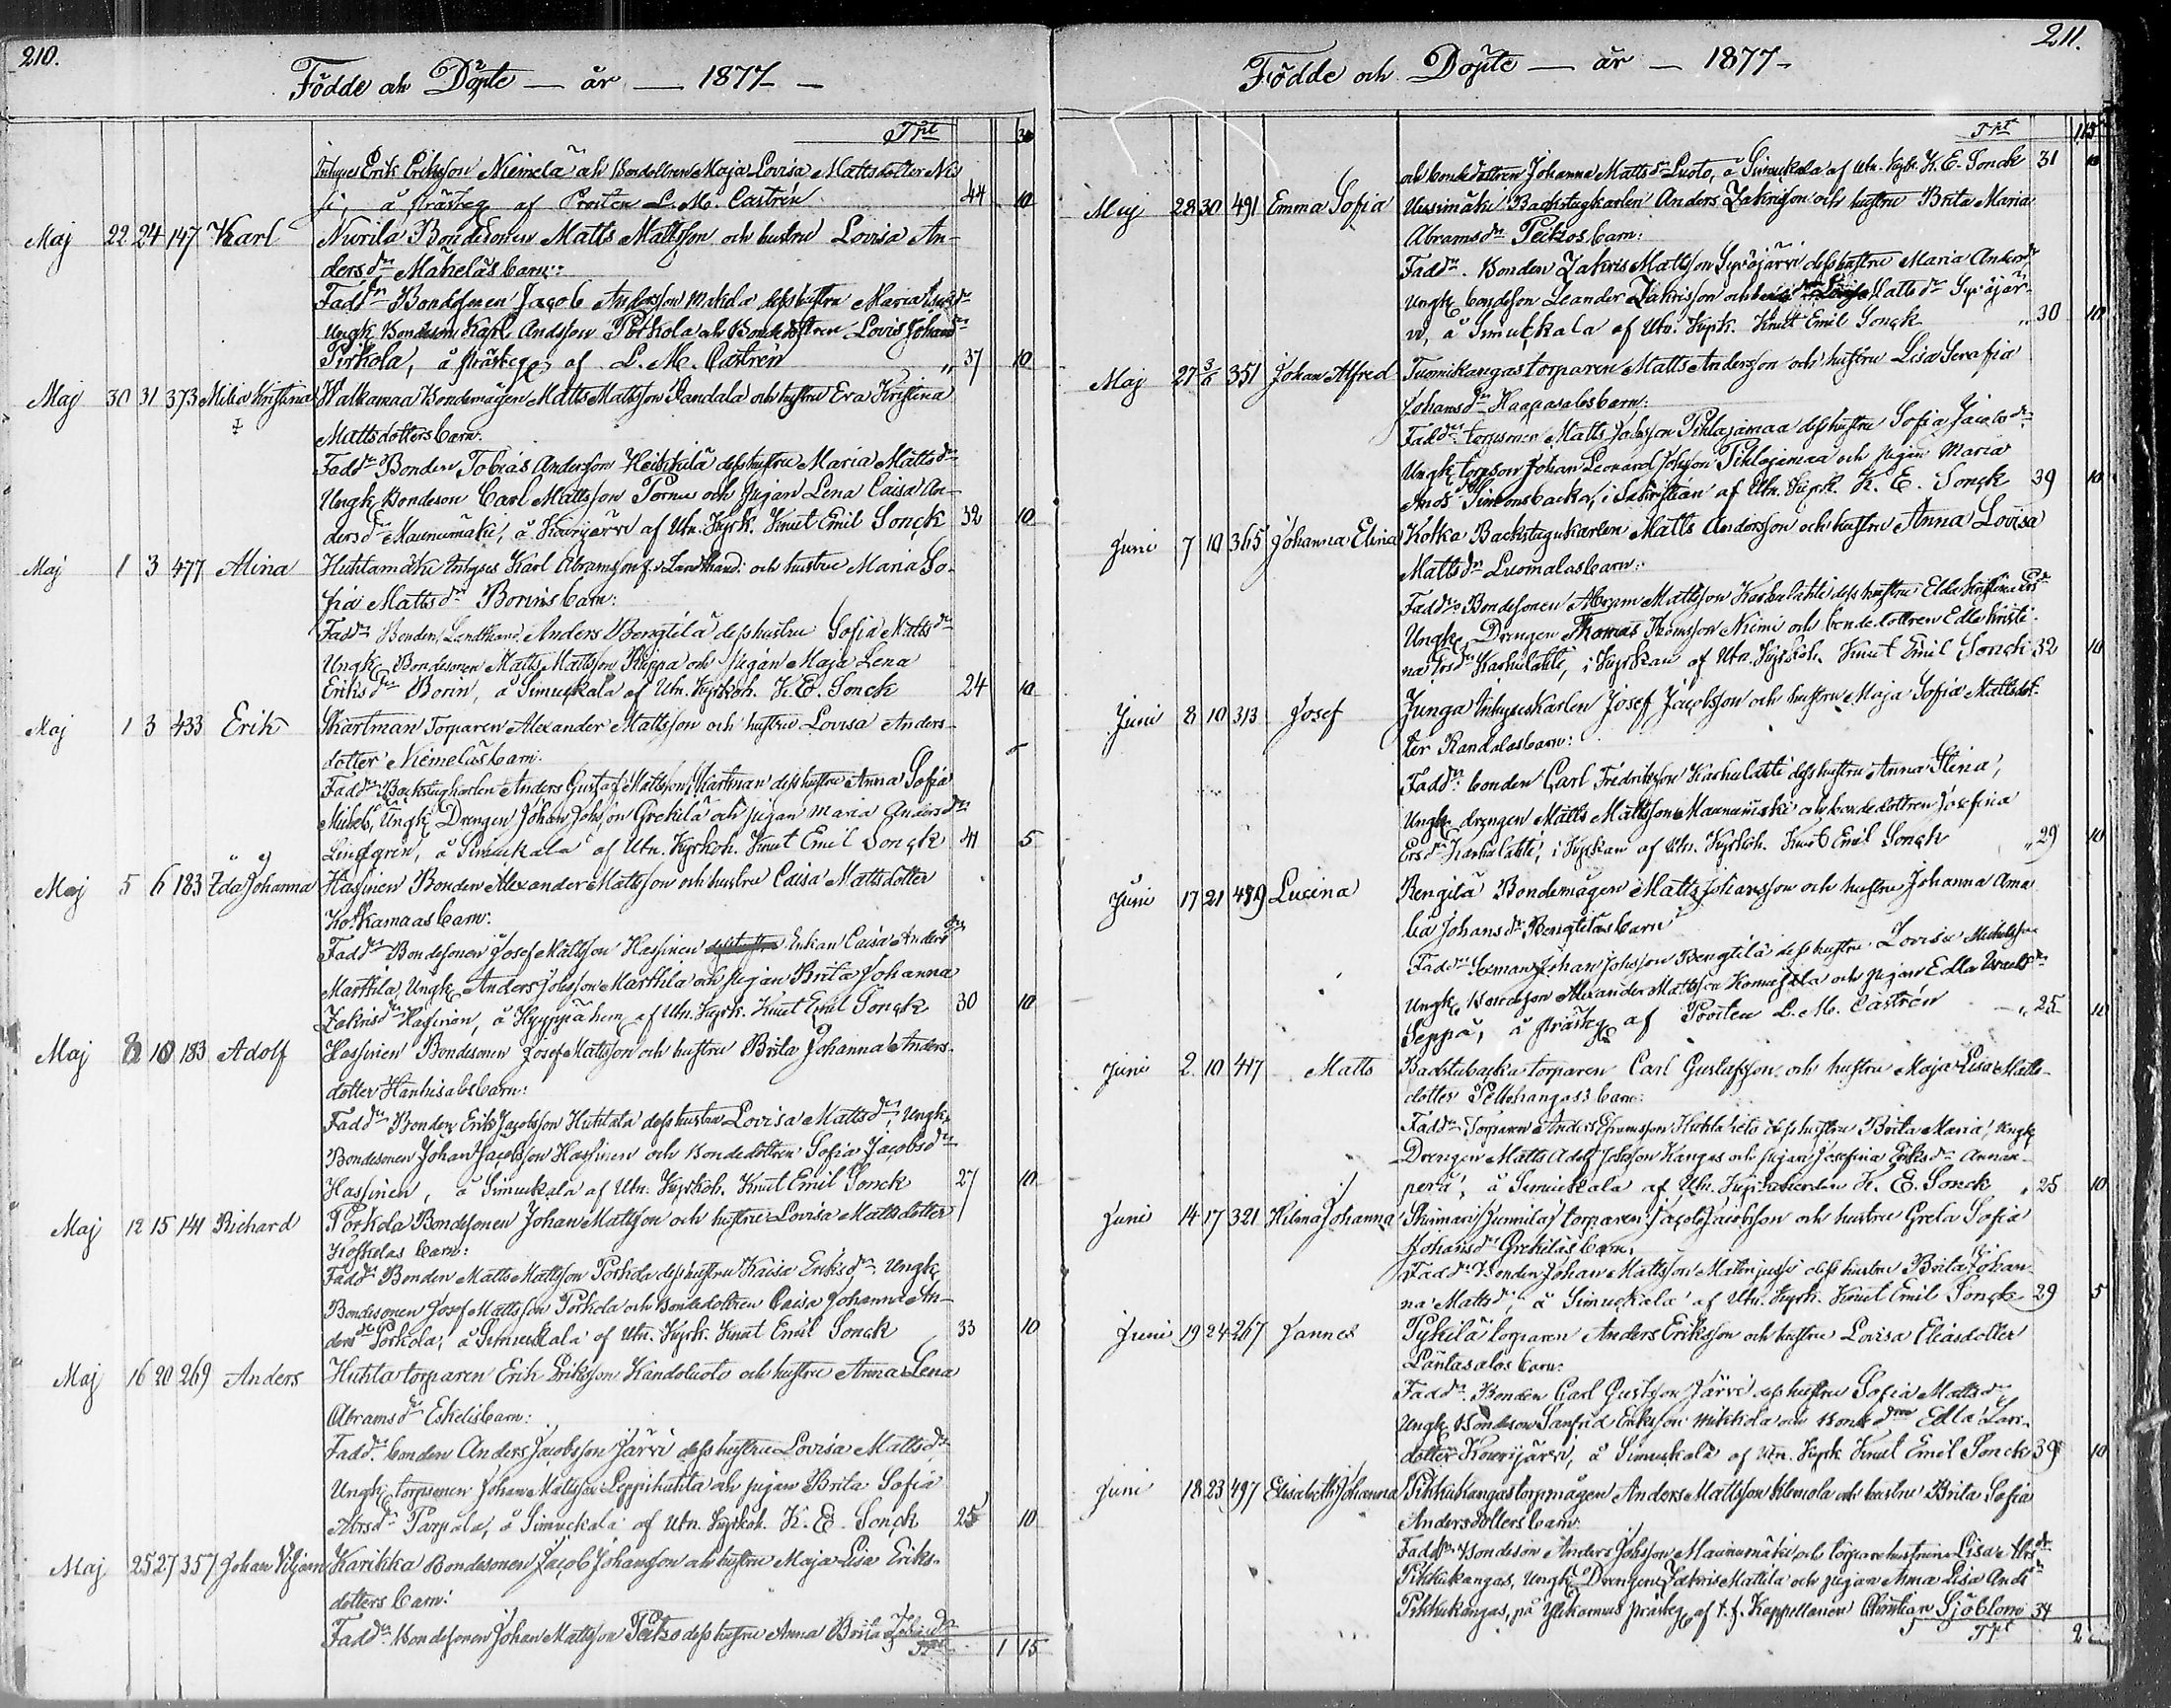 210.
Födde och Döpte — år — 1877 —
Tpt 30
Inhyses Erik Eriksson Niemelä och Bondedottren Maja Lovisa Mattsdotter
å prästeg. af Prosten L. M. Castrén 44 10
Maj 22 24 147 Karl Nurila Bondesonen Matts Mattsson och hustru Lovisa An-
dersdr Mäkeläs barn:
Faddr Bondesonen Jacob Andersson Mäkelä dess hustru Maria
Ungk. Bondeson Karl Andsson Porkola och Bondedottren Lovis Johansdr
Porkola, å prästeg. af L. M. Castrén " 37 10
Maj 30 31 373 Milia Kristina Walkamaa Bondemågen Matts Mattsson Randala och hustru Eva Kristina
Mattsdotters barn.
Faddr Bonden Tobias Andersson Heikkilä dess hustru Maria Mattsdr
Ungk. Bondeson Carl Mattsson Pernu och pigan Lena Caisa An-
dersdr Maunumäki, å Kouvjärvi af Utn. Kyrk. Knut Emil Sonck 32 10
Maj 1 3 477 Alina Huhtamäki Inhyses Karl Abramsson f. Landthand. och hustru Maria So-
fia Mattsdr Borins barn:
Faddr Bonden Landthand. Anders Bengtilä dess hustru Sofia Mattsdr
Ungk. Bondesonen Matts Mattsson Pleppa och pigan Maja Lena
Eriksdr Borin, å Simuckala af Utn. Kyrkoh. K. E. Sonck 24 10
Maj 1 3 433 Erik Skartman Torparen Alexander Mattsson och hustru Lovisa Anders-
dotter Niemeläs barn.
Faddr Backstugkarlen Anders Gustaf Mattsson Skartman dess hustru Anna Sofia
Michels, Ungk. Drengen Johan Johsson Grekilä och pigan Maria Andersdr
Lindgren, å Simuckala af Utn. Kyrkoh. Knut Emil Sonck 41 5
Maj 5 6 183 Ida Johanna Hassinen Bonden Alexander Mattsson och hustru Caisa Mattsdotter
Kotkamaas barn:
Faddr Bondesonen Josef Mattsson Hassinen Enkan Caisa Andersdr
Marttila, Ungk. Anders Johsson Marttila och pigan Brita Johanna
Zakrisdr Hassinen, å Hyyppä hem af Utn. Kyrk. Knut Emil Sonck 30 10
Maj 8 10 183 Adolf Hassinen Bondesonen Josef Mattsson och hustru Brita Johanna Anders-
dotter Hankisalos barn:
Faddr Bonden Erik Jacobsson Huhtala dess hustru Lovisa Mattsdr, Ungk.
Bondesonen Johan Jacobsson Hassinen och Bondedottren Sofia Jacobsdr
Hassinen, å Simuckala af Utn. Kyrkoh. Knut Emil Sonck 27 10
Maj 12 15 141 Richard Porkola Bondesonen Johan Mattsson och hustru Lovisa Mattsdotter
Koskelas barn:
Faddr Bonden Matts Mattsson Porkola dess hustru Kaisa Eriksdr Ungk.
Bondesonen Josef Mattsson Porkola och Bondedottren Caisa Johanna An-
dersdr Porkola, å Simuckala af Utn. Kyrk. Knut Emil Sonck 33 10
Maj 16 20 269 Anders Huhta torparen Erik Eriksson Kandoluoto och hustru Anna Lena
Abramsdr Eskelis barn:
Faddr bonden Anders Jacobsson Järvi dess hustru Lovisa Mattsdr
Ungk. torpsonen Johan Mattsson Leppihuhta och pigan Brita Sofia
Abrsdr Parpala, å Simuckala af Utn. Kyrkoh. K. E. Sonck 25 10
Maj 25 27 357 Johan Viljam Karikka Bondesonen Jacob Johansson och hustru Maja Lisa Eriks-
dotters barn:
Faddr Bondesonen Johan Mattsson Peitso dess hustru Anna Brita Johansdr
Tpt 1 15
211.
Födde och Döpte — år — 1877 —
Tpt 1 15
och bondedottren Johanna Mattsdr Luoto, å Simuckala af Utn. Kyrk. K. E. Sonck 31 10
Maj 28 30 491 Emma Sofia Uusimäki Backstugkarlen Anders Zakrisson och hustru Brita Maria
Abramsdr Peitsos barn:
Faddr. Bonden Zakris Mattsson Syväjärvi dess hustru Maria Andersdr
Ungk. bondeson Leander Zakrisson och Mattsdr Syväjär-
vi, å Simuckala af Utn. Kyrk. Knut Emil Sonck " 30 10
Maj 27 3/6 351 Johan Alfred Tuomikangas torparen Matts Andersson och hustru Lisa Serafia
Johansdr Haapasalos barn:
Faddr: torpsonen Matts Jacobsson Pihlajamaa dess hustru Sofia Jacobsdr
Ungk. torpson Johan Leonard Johsson Pihlajamaa och pigan Maria
Andsdr Simonsbacka, i Sakristian af Utn. Kyrk. K. E. Sonck 39 10
Juni 7 10 365 Johanna Elina Kotka Backstugukarlen Matts Andersson och hustru Anna Lovisa
Mattsdr Luomalas barn:
Faddr Bondesonen Abram Mattsson Karhulahti dess hustru Edla Kristina Ersdr
Ungk. Drengen Thomas Thomsson Niemi och bondedottren Edla Kristi-
na Ersdr Karhulahti, i Kyrkan af Utn. Kyrkoh. Knut Emil Sonck 32 10
Juni 8 10 313 Josef Junga Inhyseskarlen Josef Jacobsson och hustru Maja Sofia Mattsdot-
ter Randalas barn:
Faddr: bonden Carl Fredriksson Karhulahti dess hustru Anna Stina,
Ungk. drengen Matts Mattsson Maunumäki och bondedottren Josefina
Ersdr Karhulahti, i Kyrkan af Utn. Kyrkoh. Knut Emil Sonck " 29 10
Juni 17 21 489 Lucina Bengtlä Bondemågen Matts Johansson och hustru Johanna Ama-
lia Johansdr Bengtiläs barn
Faddr Sexman Johan Johsson Bengtilä dess hustru Lovisa
Ungk. Bondeson Alexander Mattsson och pigan Edla
Seppä, å prästeg. af Prosten L. M. Castrén " 25 10
Juni 2 10 417 Matts Badstubacka torparen Carl Gustafsson och hustru Maja Lisa Matts-
dotter Pellokangas's barn:
Faddr Torparen Anders Eframsson dess hustru Brita Maria, Ungk.
Drengen Matts Adolf Johsson Kangas och pigan Josefina Eriksdr Annan-
perä, å Simuckala af Utn. Kyrkoherden K. E. Sonck " 25 10
Juni 14 17 321 Hilma Johanna Skinnari Junnila torparen Jacob Jacobsson och hustru Greta Sofia
Johansdr Grekiläs barn:
Faddr. Bonden Johan Mattsson Matinjussi dess hustru Brita Johan-
na Mattsdr, å Simuckala af Utn. Kyrk. Knut Emil Sonck 29 5
Juni 19 24 267 Jannes Pykilä torparen Anders Eriksson och hustru Lovisa Eliasdotter
Lantasalos barn:
Faddr. Bonden Carl Gustsson Järvi dess hustru Sofia Mattsdr,
Ungk. Bondeson Sanfrid Eriksson Mikkola och Edla Lars-
dotter Kouvjärvi, å Simuckala af Utn. Kyrk. Knut Emil Sonck 39 10
Juni 18 23 497 Elisabeth Johanna Pihkukangas torpmågen Anders Mattsson Alemola och hustru Brita Sofia
Andersdotters barn
Faddr. Bondeson Anders Johsson Maunumäki och torparehustrun Lisa Abrsdr
Pihkukangas, Ungk. Drengen Zakris Mattila och pigan Anna Lisa Andsdr
Pihkukangas, på Ylikornus prästeg. af t.f. Kappellanen Christian Sjöblom 34
Tpt 2